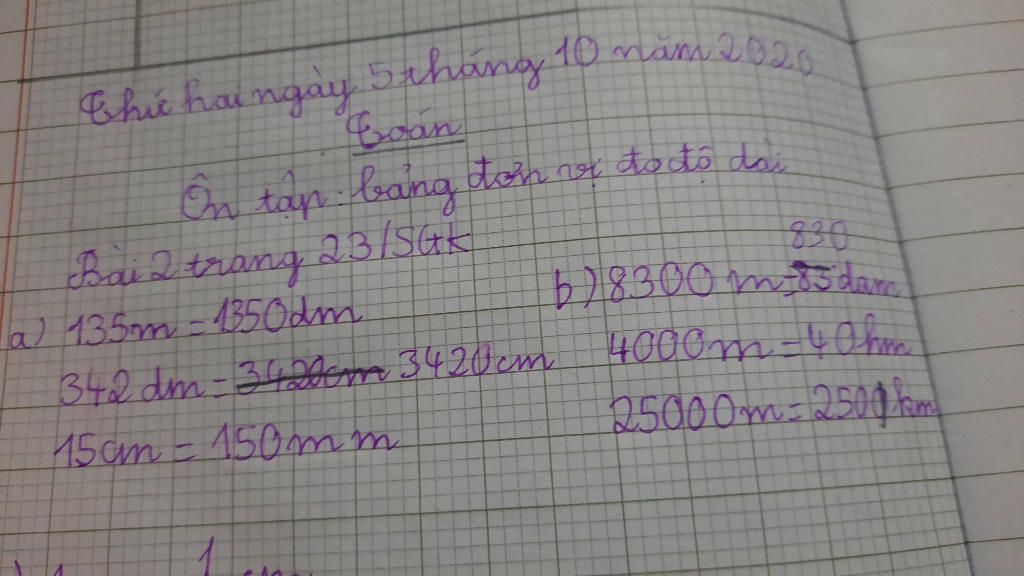 Thứ hai ngày 5 tháng 10 năm 2020
Toán
Ôn tập: bảng đơn vị đo độ dài
Bài 2 trang 23/SGK
a) 135m = 1350dm
342 dm = 3420cm 3420cm
15cm = 150mm
830
b) 8300 m = 85 dam
4000m = 40hm
25000m =